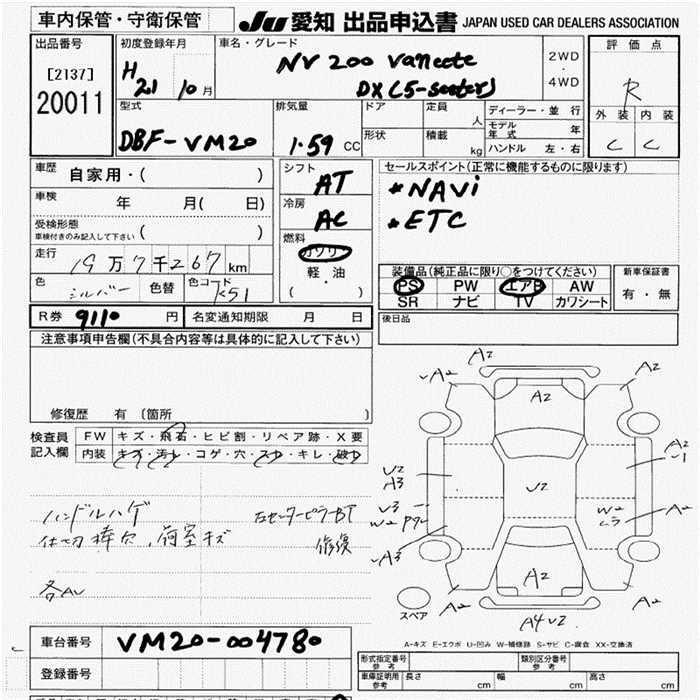 車内保管・守衛保管
JU 愛知 出品申込書 JAPAN USED CAR DEALERS ASSOCIATION
出品番号
[2137]
20011
初度登録年月
H 21 10 月
車名・グレード
NV 200 Vanette
DX (5-seater)
2WD
・
4WD
評価点
R
外装 内装
C C
型式
DBF-VM20
排気量
1.59 CC
ドア
定員
人
形状
積載
kg
ディーラー・並行
モデル年式 年
ハンドル 左・右
車歴
自家用・( )
車検
年 月( 日)
受検形態
車検付きのみ記入して下さい ( )
走行
19万7千267 km
色
シルバー
色替
色コード
K51
シフト
AT
冷房
AC
燃料
ガソリン
軽・油
( )
セールスポイント(正常に機能するものに限ります)
*NAVi
*ETC
装備品(純正品に限り○をつけてください)
PS PW エアB AW
SR ナビ TV カワシート
新車保証書
有・無
後日品
R券 9110 円
名変通知期限 月 日
注意事項申告欄(不具合内容等は具体的に記入して下さい)
修復歴 有 〔箇所 〕
検査員記入欄
FW キズ・飛石・ヒビ割・リペア跡・X要
内装 キズ・汚れ・コゲ・穴・スレ・キレ・破れ
ハンドルハゲ
左センターピラーBT
仕切棒欠、荷室キズ
修復
各AU
A2
A2
A2
A2
A2
U1
U2
A3
U2
U3
W2
W2
A2
A3
A2
A2
A2
A4 U2
スペア
A-キズ E-エクボ U-凹み W-補修跡 S-サビ C-腐食 XX-交換済
車台番号
VM20-004780
登録番号
形式指定番号
参考
類別区分番号
参考
車庫証明用
参考
長さ cm 幅 cm 高さ cm